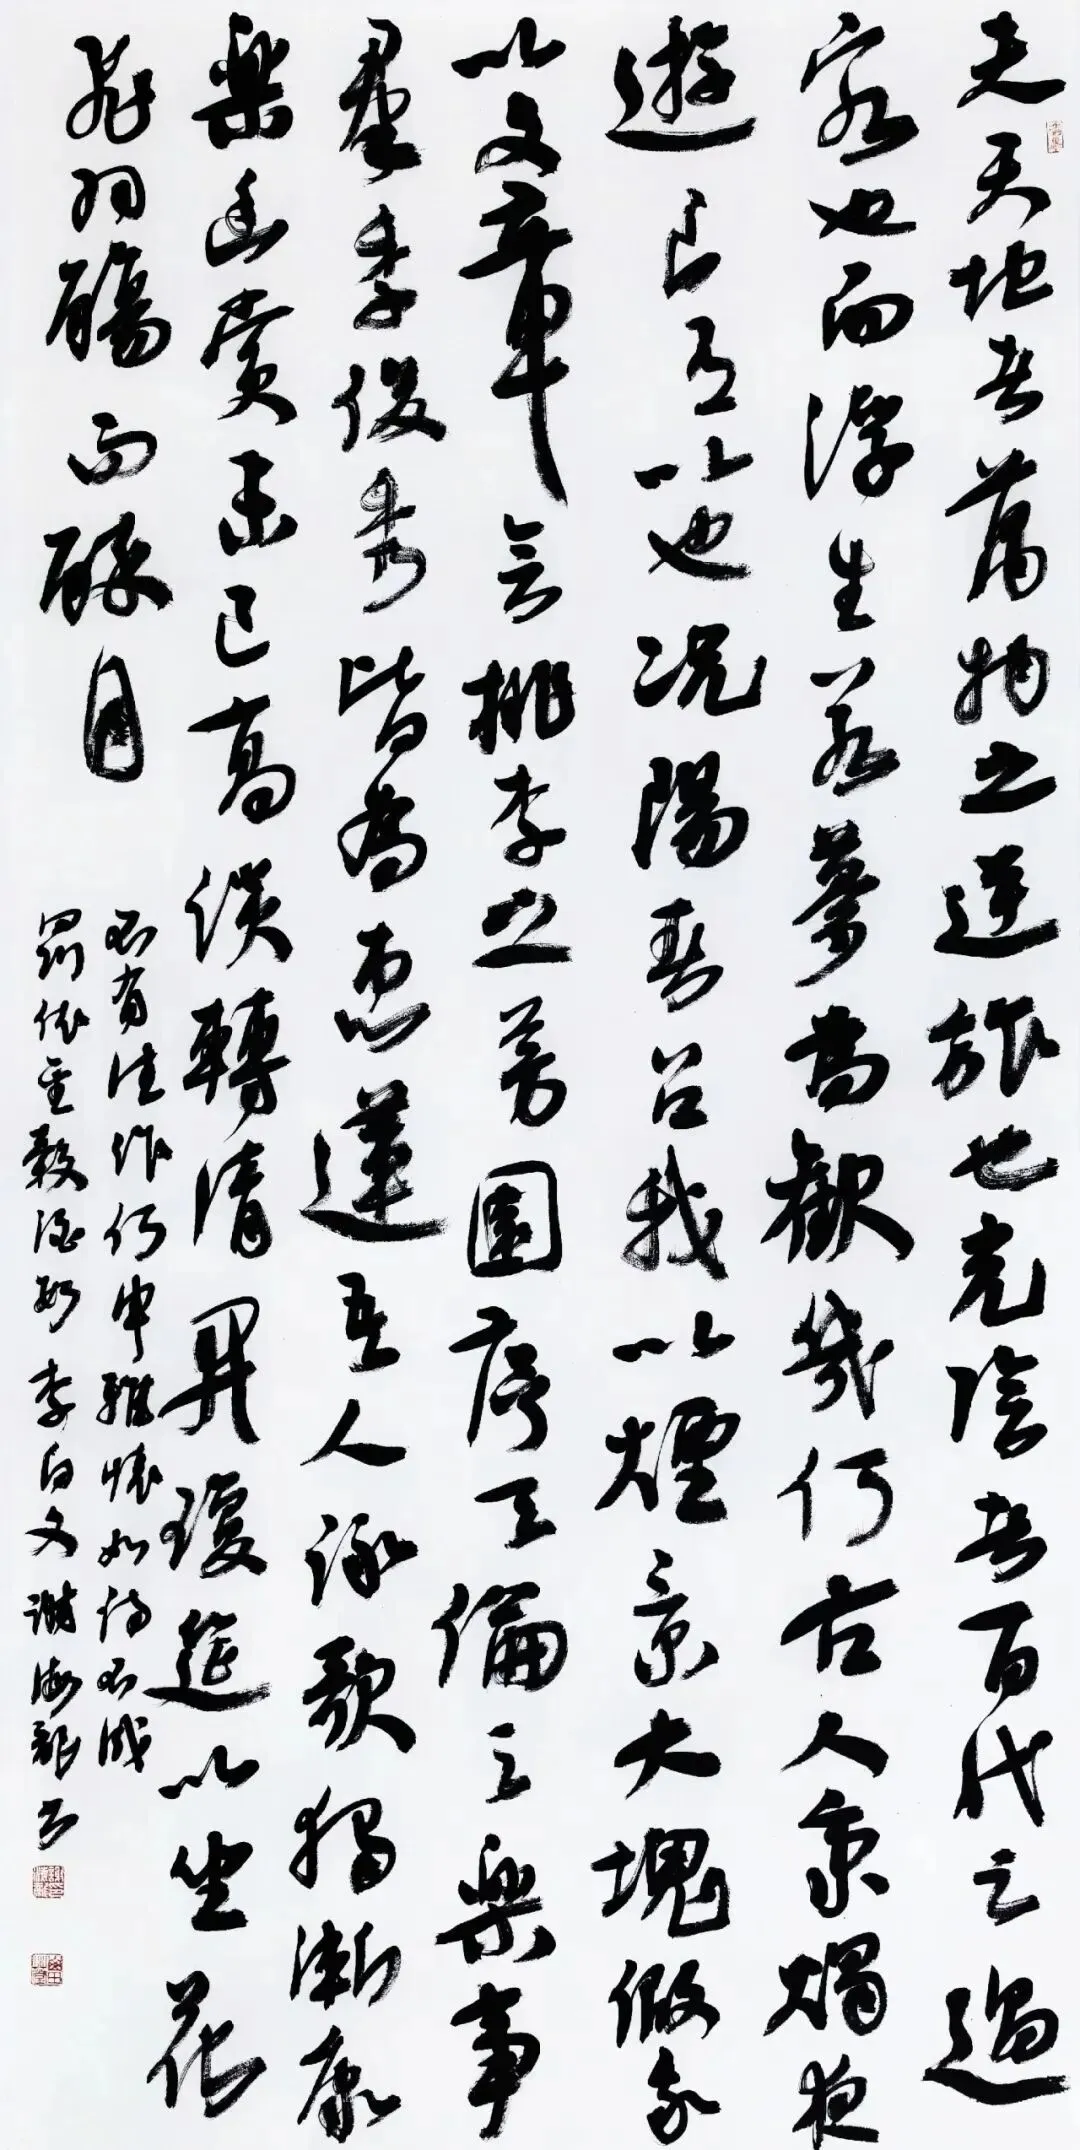 夫天地者萬物之逆旅也光陰者百代之過
客也而浮生若夢為歡幾何古人秉燭夜
遊良有以也況陽春召我以煙景大塊假我
以文章會桃李之芳園序天倫之樂事
羣季俊秀皆為惠連吾人詠歌獨慚康
樂幽賞未已高談轉清開瓊筵以坐花
飛羽觴而醉月
不有佳作何申雅懷如詩不成
罰依金谷酒數李白文謝海龍書